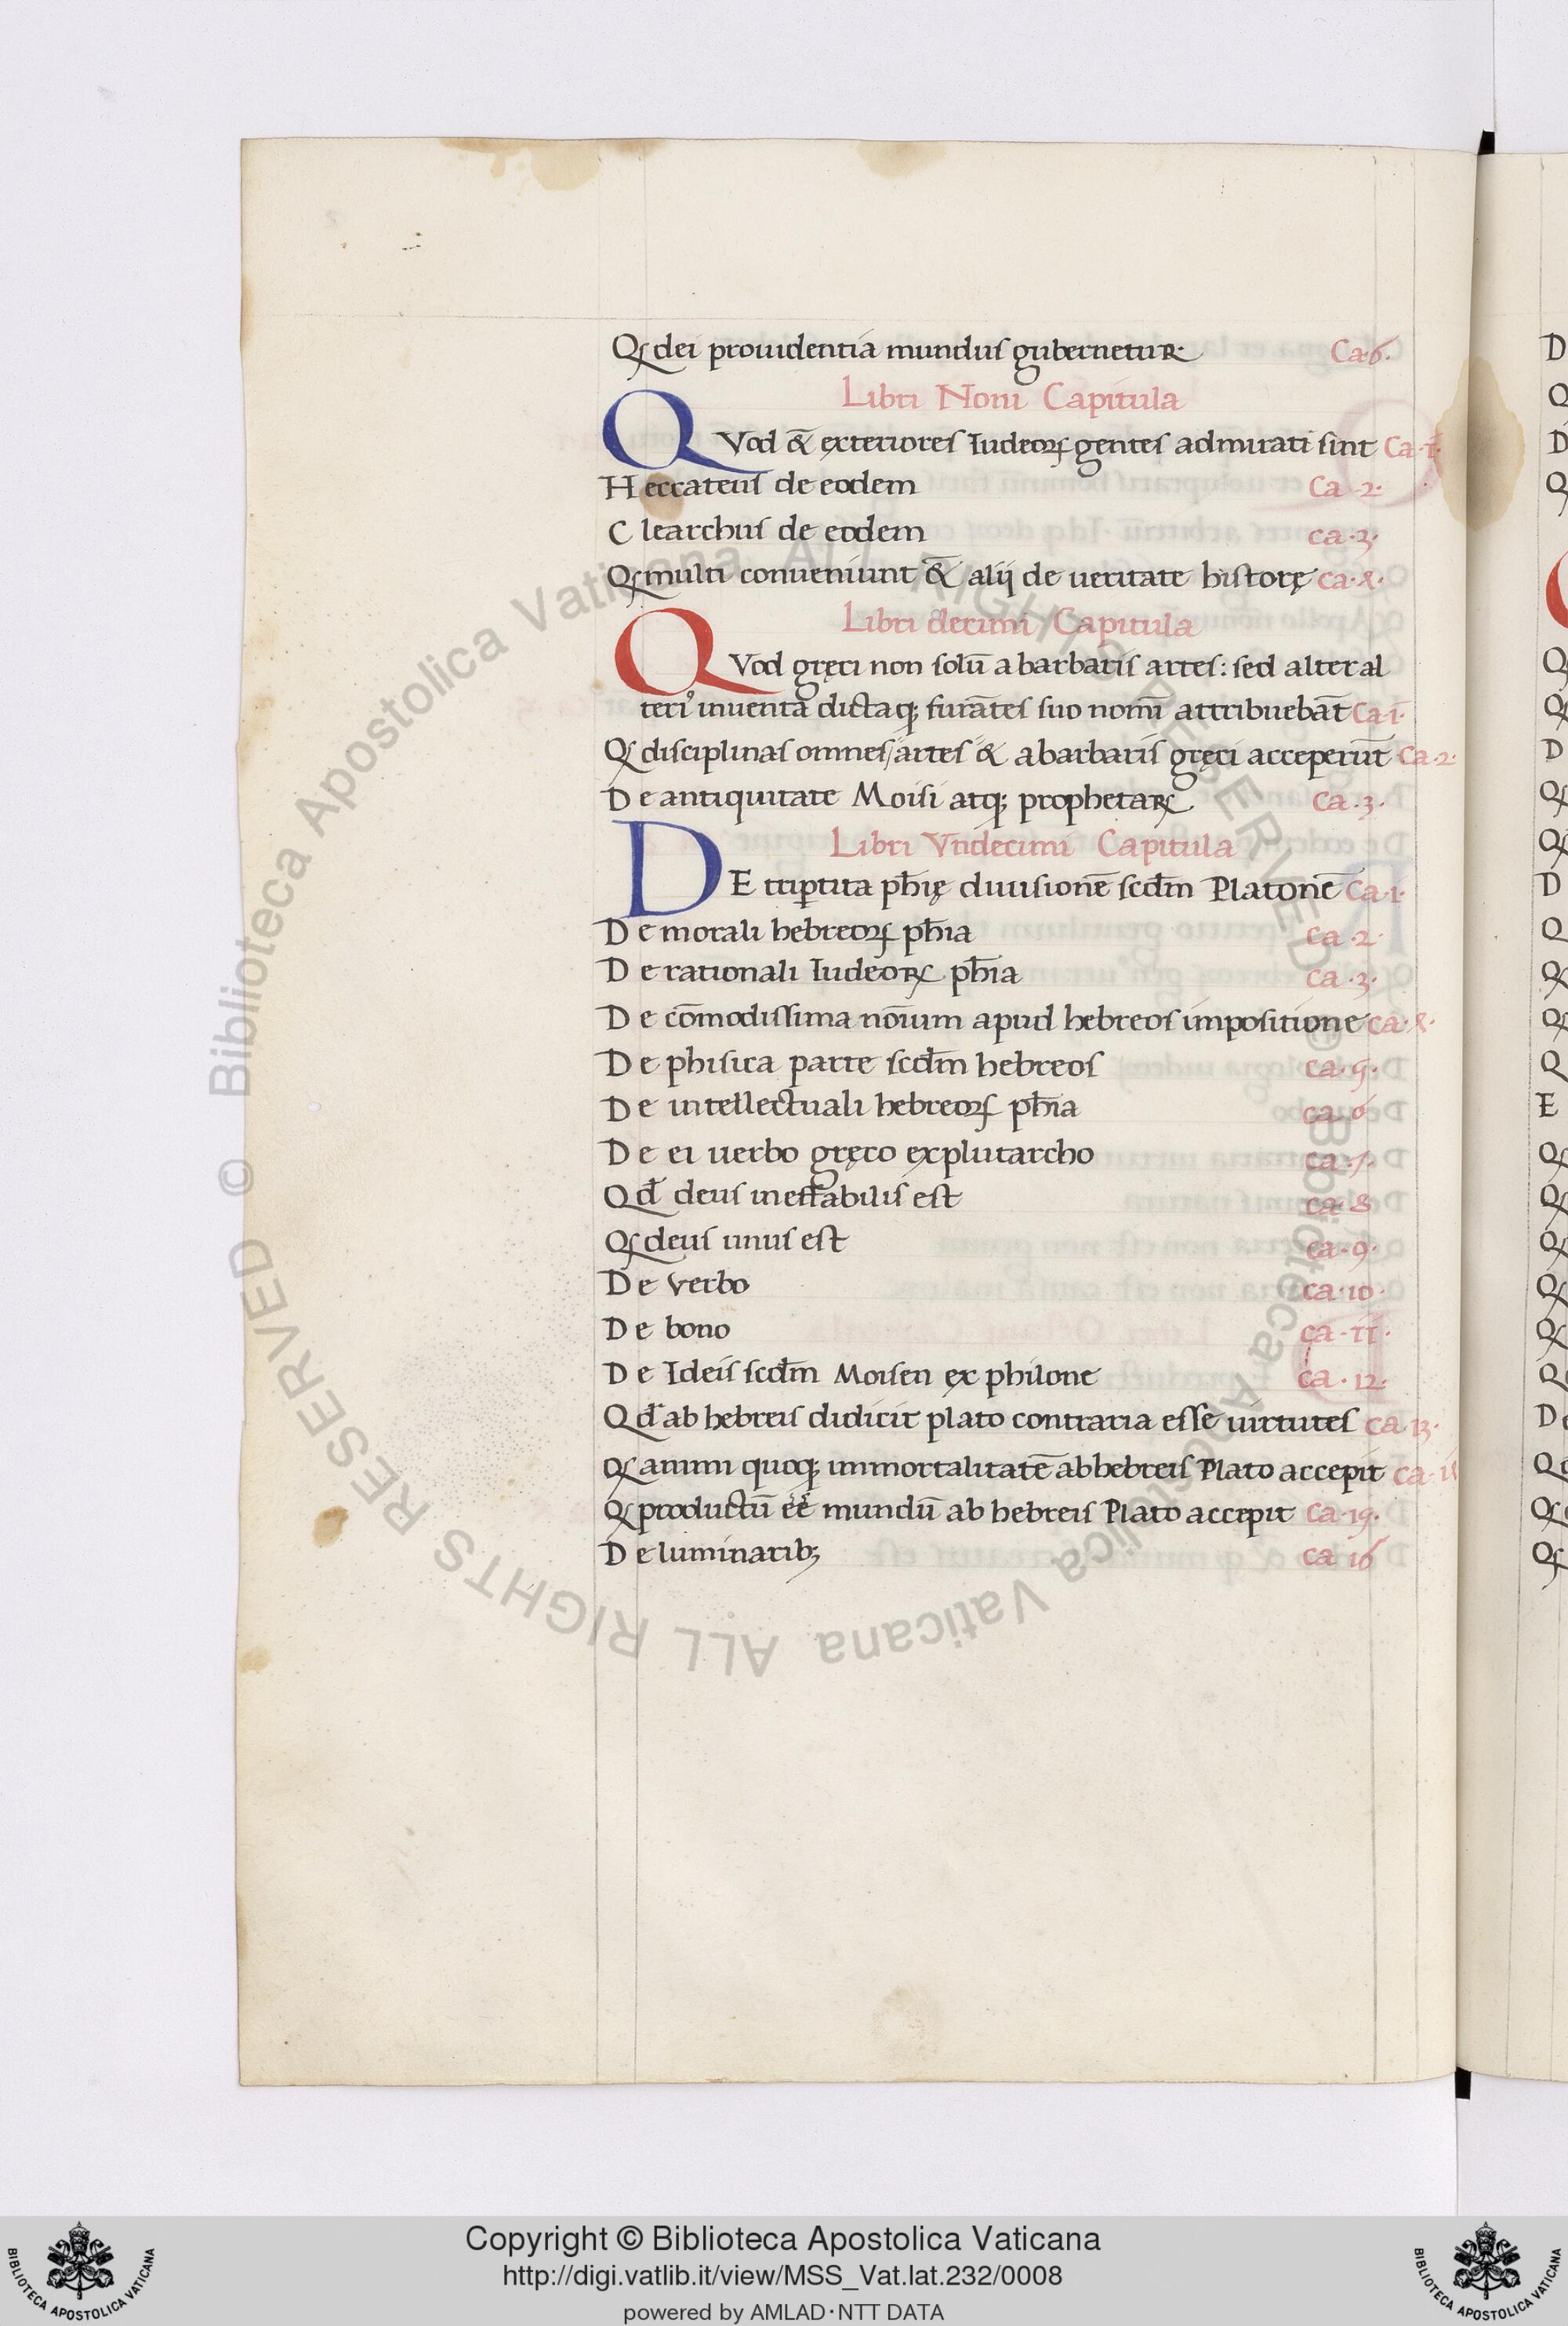 Qꝫ dei prouidentia mundus gubernetur· Ca·6·
Libri Noni Capitula
QVod & exteriores Iudeoꝝ gentes admirati sint Ca·1·
Heccateus de eodem Ca·2·
Clearchus de eodem ca·3·
Qꝫ multi conueniunt & alij de ueritate historę ca·4·
Libri decimi Capitula
QVod gręci non solū a barbaris artes: sed alter al
teri᾽ inuenta dictaqꝫ furātes suo nomī attribuebāt Ca·1·
Qꝫ disciplinas omnes/artes & a barbaris gręci acceperūt Ca·2·
De antiquitate Moisi atqꝫ prophetaꝝ Ca·3·
Libri Vndecimi Capitula
DE tripertita ph̄ię diuisionē scd̄m Platonē Ca·1·
De morali hebreoꝝ ph̄ia ca·2·
De rationali Iudeoꝝ ph̄ia ca·3·
De cōmodissima noīum apud hebreos impositione ca·4·
De phisica parte scd̄m hebreos ca·5·
De intellectuali hebreoꝝ ph̄ia ca 6
De ei uerbo gręco ex plutarcho ca·7·
Qd̄ deus ineffabilis est ca·8
Qꝫ deus unus est ca·9·
De verbo ca·10·
De bono ca·11·
De Ideis scd̄m Moisen ex philone ca·12·
Qd̄ ab hebreis didicit plato contraria esse uirtutes ca·13·
Qꝫ animi quoqꝫ immortalitatē ab hebreis Plato accepit ca·
Qꝫ productū eē mundū ab hebreis Plato accepit ca·15·
De luminaribꝫ ca 16
© Biblioteca Apostolica Vaticana ALL RIGHTS RESERVED © Biblioteca Apostolica Vaticana ALL RIGHTS RESERVED
Copyright © Biblioteca Apostolica Vaticana
http://digi.vatlib.it/view/MSS_Vat.lat.232/0008
powered by AMLAD·NTT DATA
BIBLIOTECA APOSTOLICA VATICANA
BIBLIOTECA APOSTOLICA VATICANA